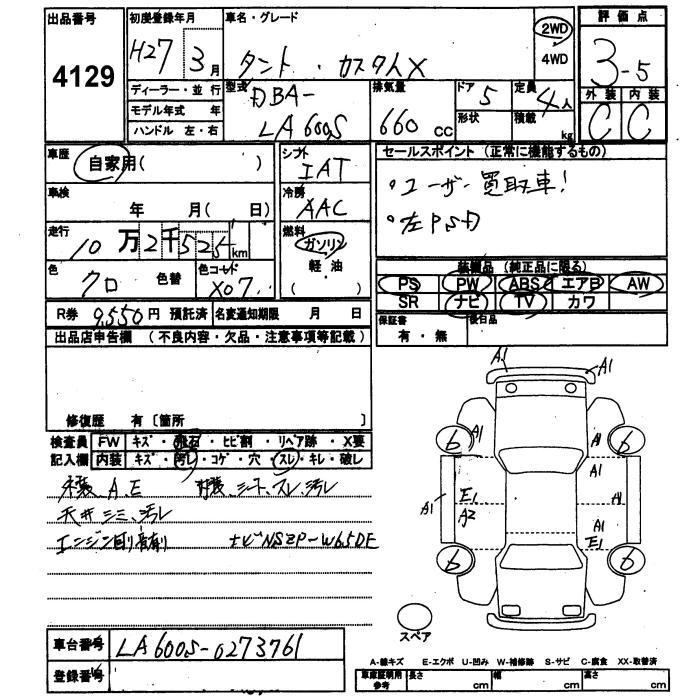 出品番号
4129
初度登録年月
H27 3月
ディーラー・並 行
モデル年式 年
ハンドル 左・右
車名・グレード
タント ・ カスタムX
2WD
4WD
型式
DBA-
LA600S
排気量
660 CC
ドア
5
形状
定員
4人
積載
kg
評価点
3-5
外装 内装
C C
車歴
自家用( )
車検
年 月( 日)
走行
10万2千525km
色
クロ
色替
色コード
X07
シフト
IAT
冷房
AAC
燃料
ガソリン
軽・油
( )
セールスポイント (正常に機能するもの)
・ユーザー買取車!
・左PSD
装備品 (純正品に限る)
PS PW ABS エアB AW
SR ナビ TV カワ
R券 9,550円 預託済
名変通知期限 月 日
保証書
有・無
後日品
出品店申告欄 (不良内容・欠品・注意事項等記載)
修復歴 有〔箇所 〕
検査員
記入欄
FW キズ・飛石・ヒビ割・リペア跡・X要
内装 キズ・汚レ・コゲ・穴・スレ・キレ・破レ
外装、A、E 内装、シート、スレ、汚レ
天井シミ、汚レ
エンジン
ナビNSZP-W65DE
車台番号
LA600S-0273761
登録番号
A1
A1
6
A1
A1
6
A1
A1
E1
A2
A1
A1
E1
6
6
スペア
A-線キズ E-エクボ U-凹み W-補修跡 S-サビ C-腐食 XX-取替済
車庫証明用
参考
長さ cm
幅 cm
高さ cm